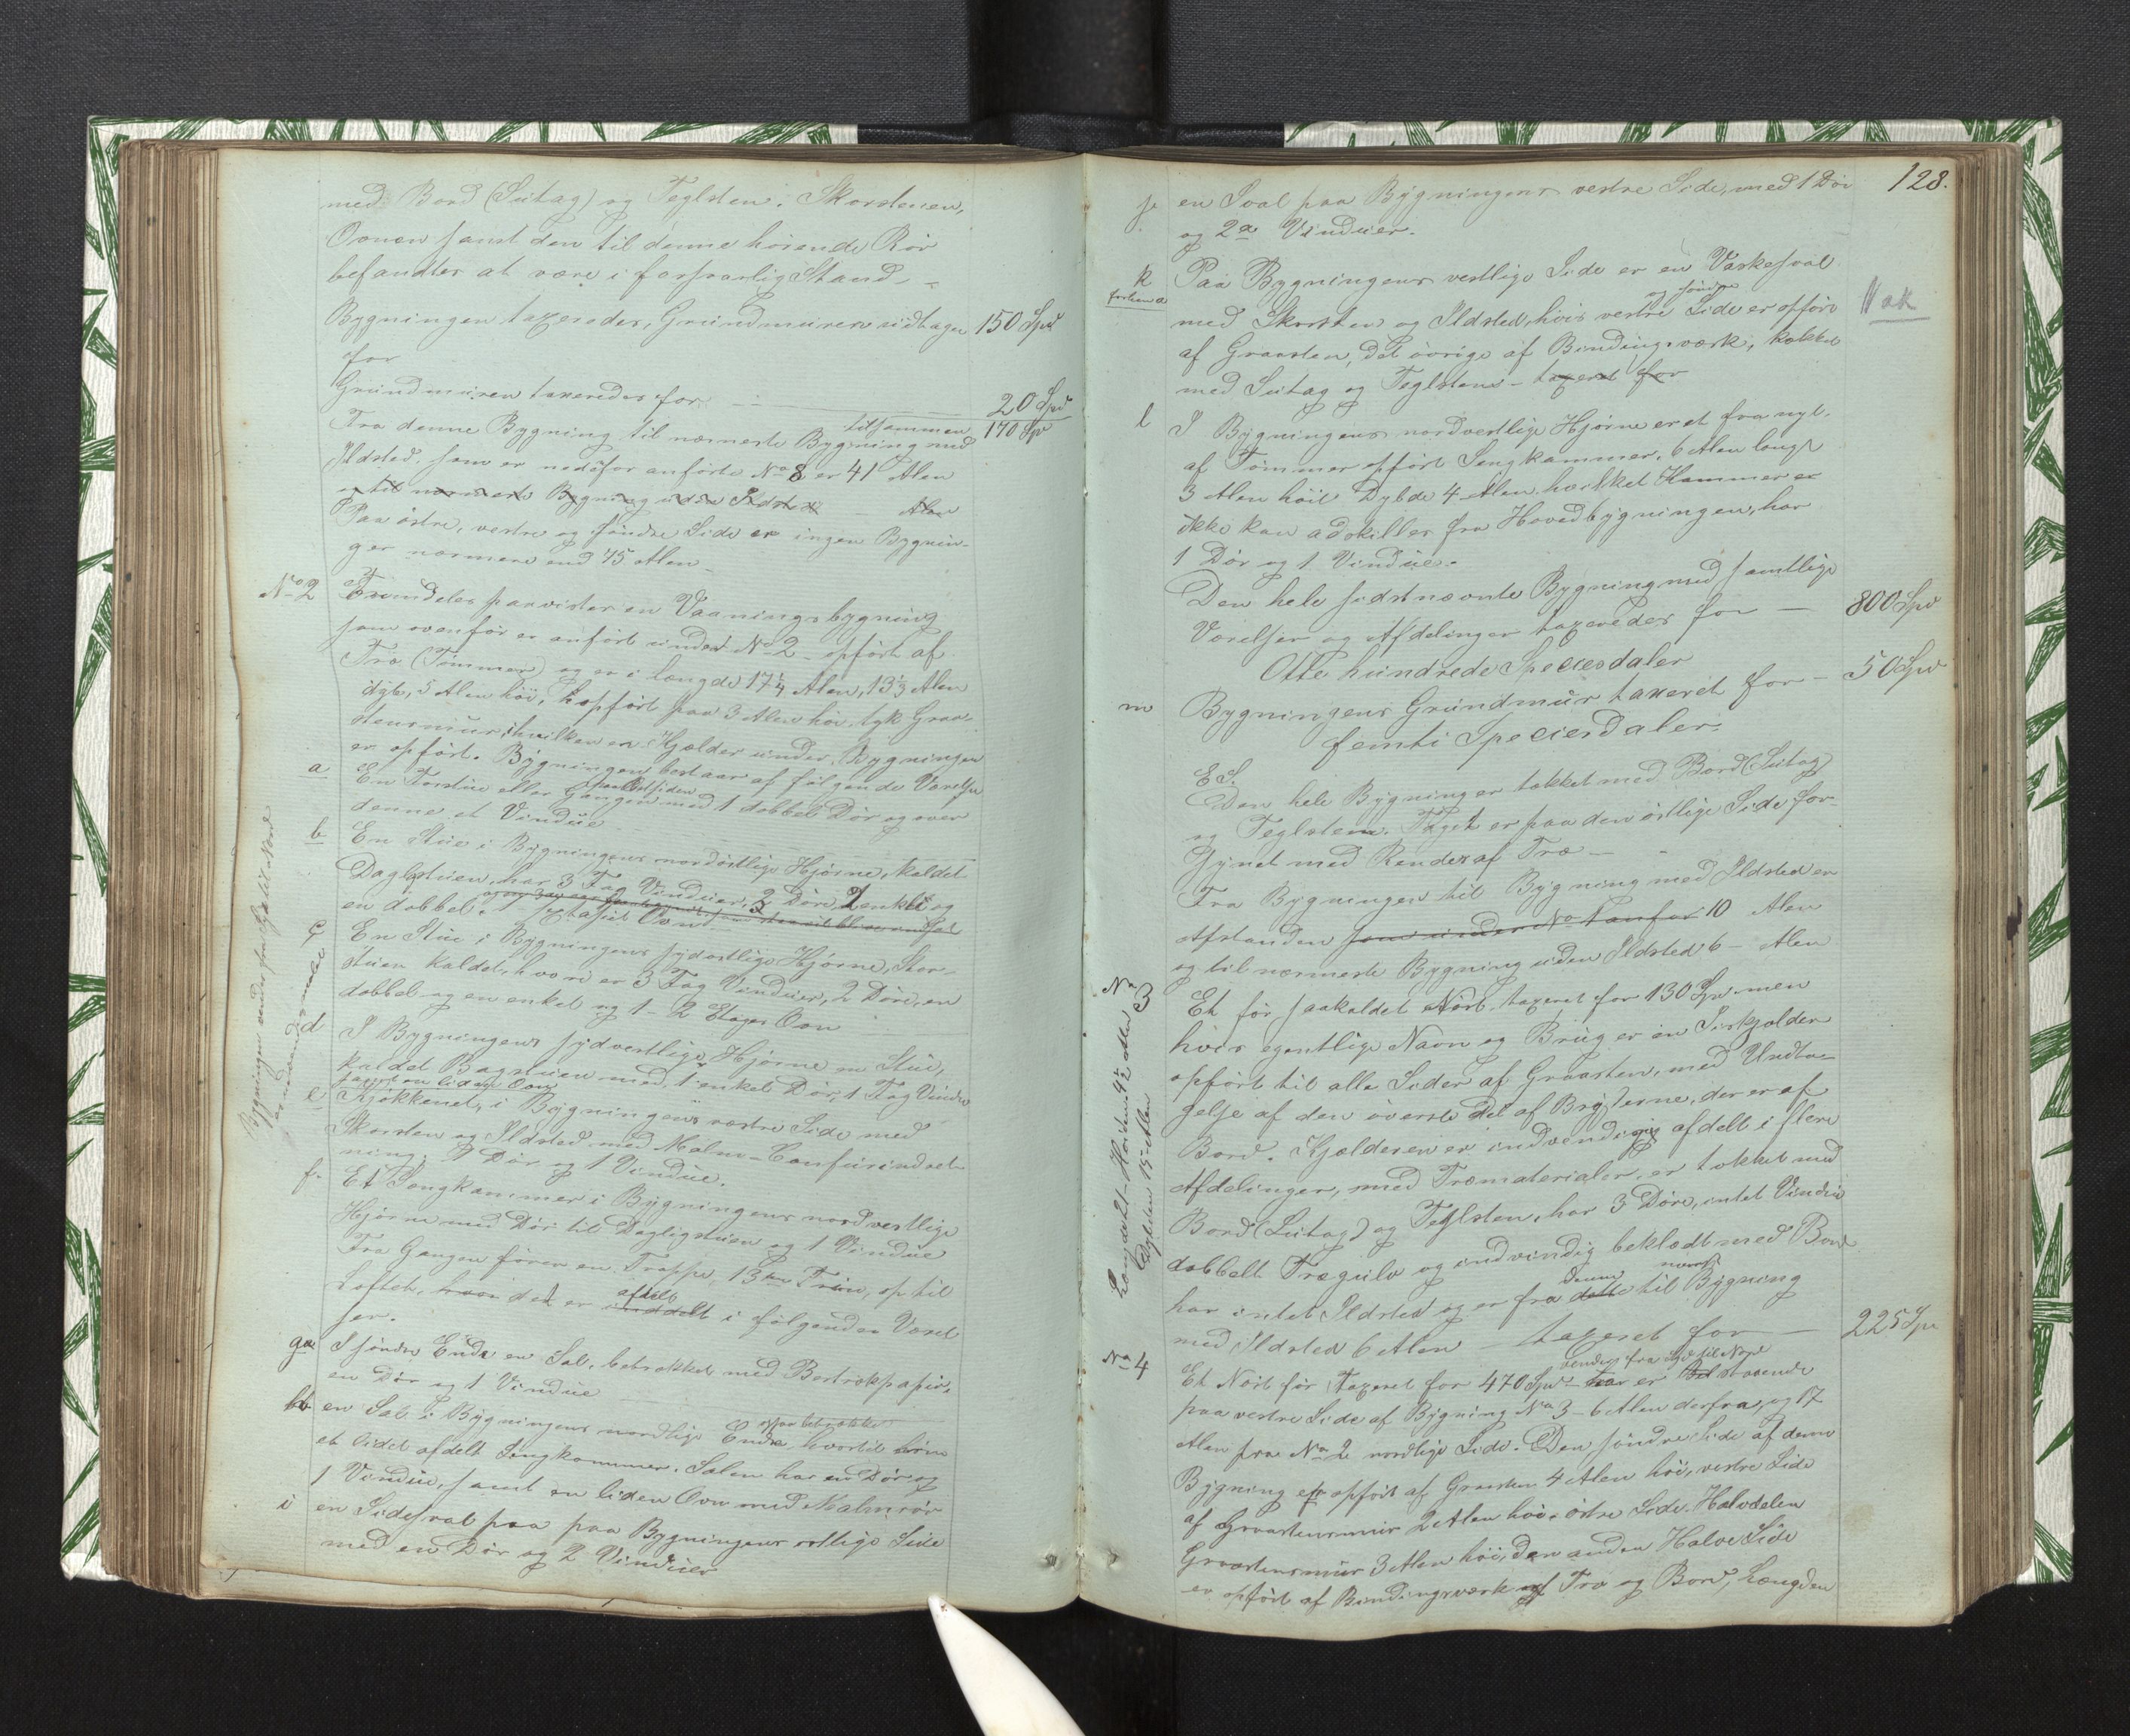 med Bord (Sutag) og Teglsten. Skorstenen,
Ovnen samt den til denne hørende Rør
befandtes at være i forsvarlig Stand -
Bygningen taxeredes, Grundmuren uidtagen 150 Spd
for
Grundmuren taxeredes for - 20 Spd
tilsammen 170 Sp
Fra denne Bygning til nærmeste Bygning med
Ildsted, som er nedenfor anførte No 8 er 41 Alen
og til nærmeste Bygning uden Ildsted - Alen
Paa østre, vestre og søndre Side er ingen Bygnin-
ger nærmere end 75 Alen -
No 2 Fremdeles paavistes en Vaaningsbygning
som ovenfor er anført under No 2 - opført af
Træ (Tømmer) og er i Længde 17 1/4 Alen, 13 1/3 Alen
dyb, 5 Alen høi, opført paa 3 Alen høi, tyk Graa-
stensmur, i hvilken en Kjælder under Bygningen
er opført. Bygningen bestaar af følgende Værelser
a En Forstue eller Gangen med 1 dobbel Dør og over
denne et Vindue
b En Stue i Bygningens nordøstlige Hjørne, kaldet
Daglistuen, har 3 Fag Vinduer, 2 Døre, 1 enkel og
en dobbel. 1 3 Etages Ovn
c En Stue i Bygningens sydøstlige Hjørne, Stor-
stuen kaldet, hvori er 3 Fag Vinduer, 2 Døre, en
dobbel og en enkel og 1 - 2 Etages Ovn
d I Bygningens sydvestlige Hjørne en Stue,
kaldet Bagstuen med 1 enkel Dør, 1 Fag Vindue
samt en liden Ovn
e Kjøkkenet, i Bygningens vestre Side med
Skorsten og Ildsted med Malm-Comfurindret-
ning. 1 Dør og 1 Vindue.
f. Et Sengkammer i Bygningens nordvestlige
Hjørne med Dør til Dagligstuen og 1 Vindue
Fra Gangen fører en Trappe, 13 Trin, op til
Loftet, hvor det er afdelt inddelt i følgende Værel
ser.
ga I søndre Ende en Sal, betrækket med Betrækpapir,
en Dør og 1 Vindue
hb en Sal i Bygningens nordlige Ende hvortil
et lidet afdelt Sengkammer. Salen har en Dør og
1 Vindue, samt en liden Ovn med Malmrør
i en Sidesval paa paa Bygningens østlige Side
med en Dør og 2 Vinduer
Bygningen vender fra Syd til Nord
indvendig malet
128.
j. en Sval paa Bygningens vestre Side, med 1 Dør
og 2a Vinduer.
k Paa Bygningens vestlige Side er en Vaskesval
med Skorsten og Ildsted, hvis vestre og søndre Side er opført
af Graasten, det øvrige af Bindingsværk, tækket
med Sutag og Teglsten - taxeret for
l I Bygningens nordvestlige Hjørne er et fra nyt,
af Tømmer opført Sengkammer, 6 Alen langt
3 Alen høit Dybde 4 Alen, hvilket Kammer er
ikke kan adskilles fra Hovedbygningen, har
1 Dør og 1 Vindue.
Den hele sidstnævnte Bygning med samtlige
Værelser og Afdelinger taxeredes for - 800 Spd
Otte hundrede Speciesdaler
m Bygningens Grundmur taxeret for - 50 Spd
femti Speciesdaler.
Den hele Bygning er tækket med Bord (Sutag)
og Teglsten. Taget er paa den østlige Side for-
synet med Render af Træ -
Fra Bygningen til Bygning med Ildsted er
Afstanden som under No 1 anført 10 Alen
og til nærmeste Bygning uden Ildsted 6 - Alen
No 3 Et før saakaldet Nøst, taxeret for 130 Spd men
hvis egentlige Navn og Brug er en Kjælder
opført til alle Sider af Graasten, med Undta-
gelse af den øverste Del af Brysterne, der er af
Bord. Kjælderen er indvendig afdelt i flere
Afdelinger, med Træmaterialer, er tækket med
Bord (Sutag) og Teglsten, har 3 Døre, intet Vindue
dobbelt Trægulv og indvendig beklædt med Bord
har intet Ildsted og er fra denne dette til nærmeste Bygning
med Ildsted 6 Alen - taxeret for - 225 Spd
Længde 21 - Høiden 4 1/2 Alen
Dybden 15 Alen
No 4 Et Nøst før taxeret for 470 Spd - vender fra Syd til Nord er staaende
paa vestre Side af Bygning No 3 - 6 Alen derfra, og 17
Alen fra No 2 nordlige Side. Den søndre Side af denne
Bygning er opført af Graasten 4 Alen høi, vestre Side
af Graastensmur 2 Alen høi, østre Side Halvdelen
Graastensmur 3 Alen høi, den anden Halve Side
er opført af Bindingsværk af Træ og Bord, Længden